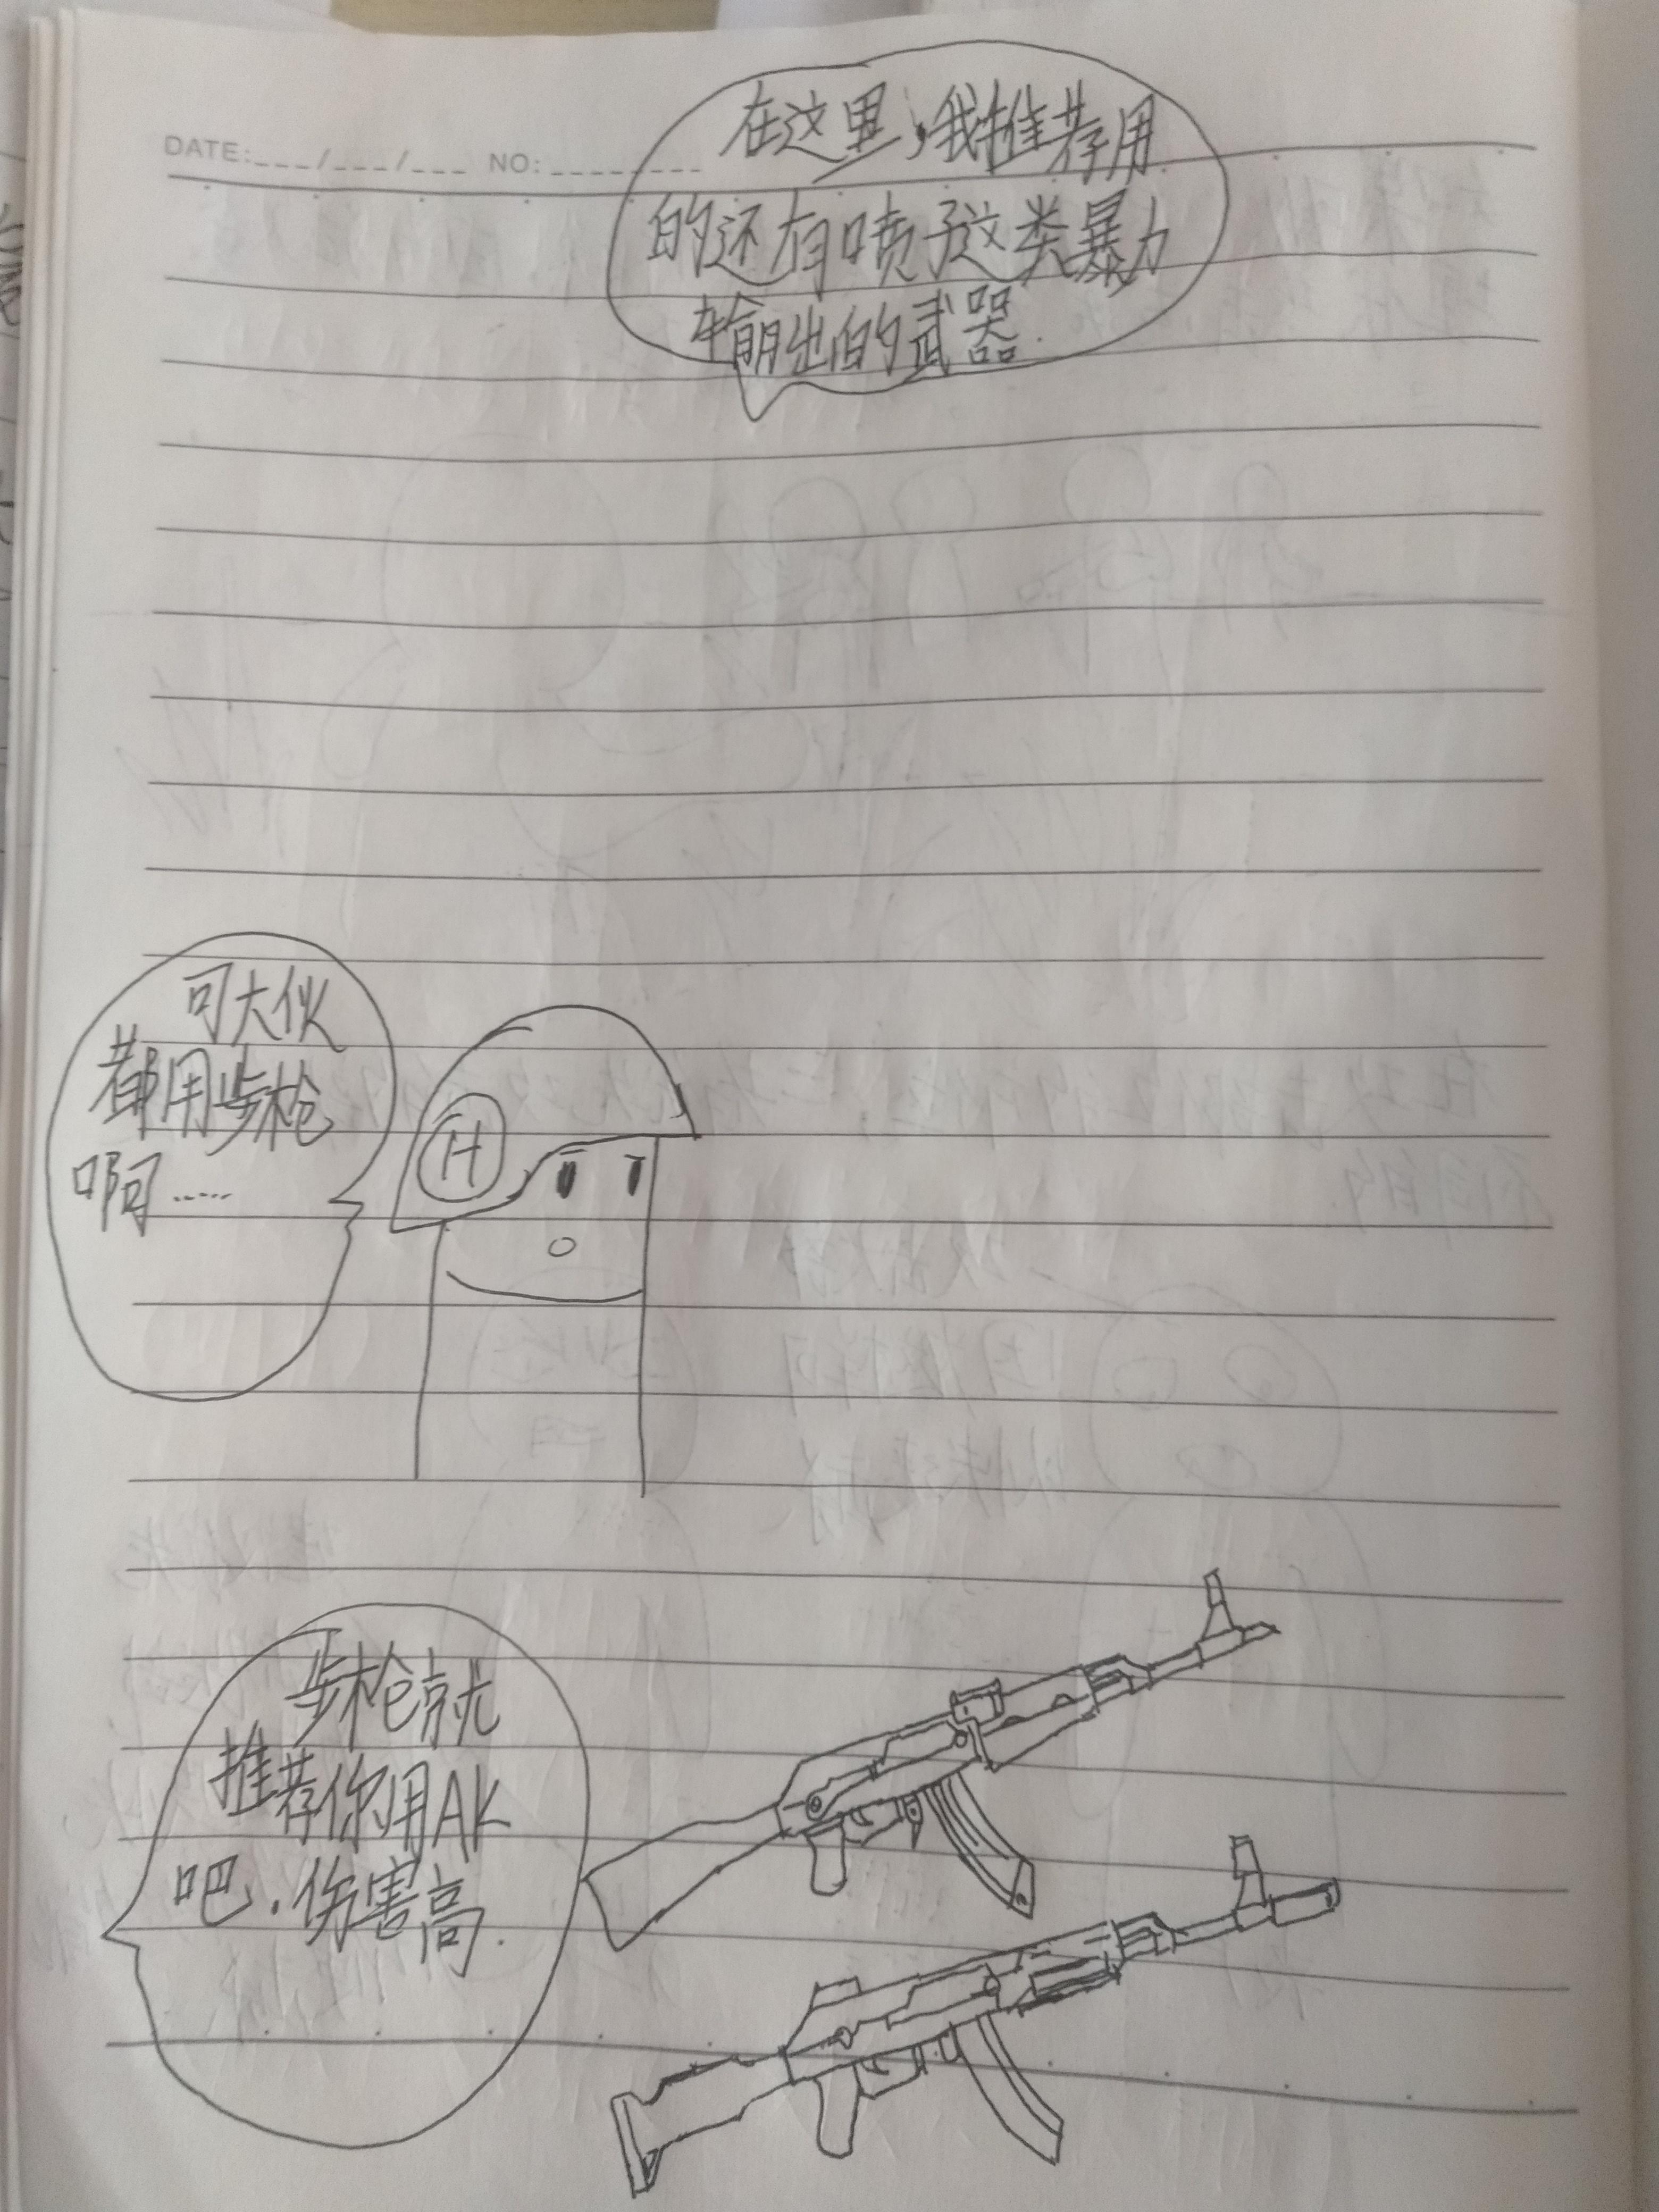 DATE:___/___/___ NO:________
在这里,我推荐用
的还有喷子这类暴力
输出的武器.
可大伙
都用步枪
啊……
H
步枪就
推荐你用AK
吧.伤害高.